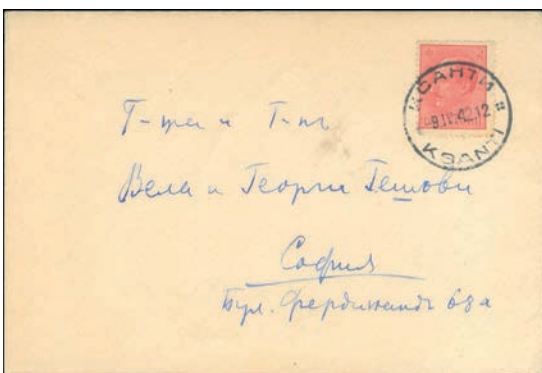 КСАНТИ
-9.IV.42.12
KSANTI
Г-жа и Г-нъ
Вела и Георги Гешови
София
Бул. Фердинандъ 68а